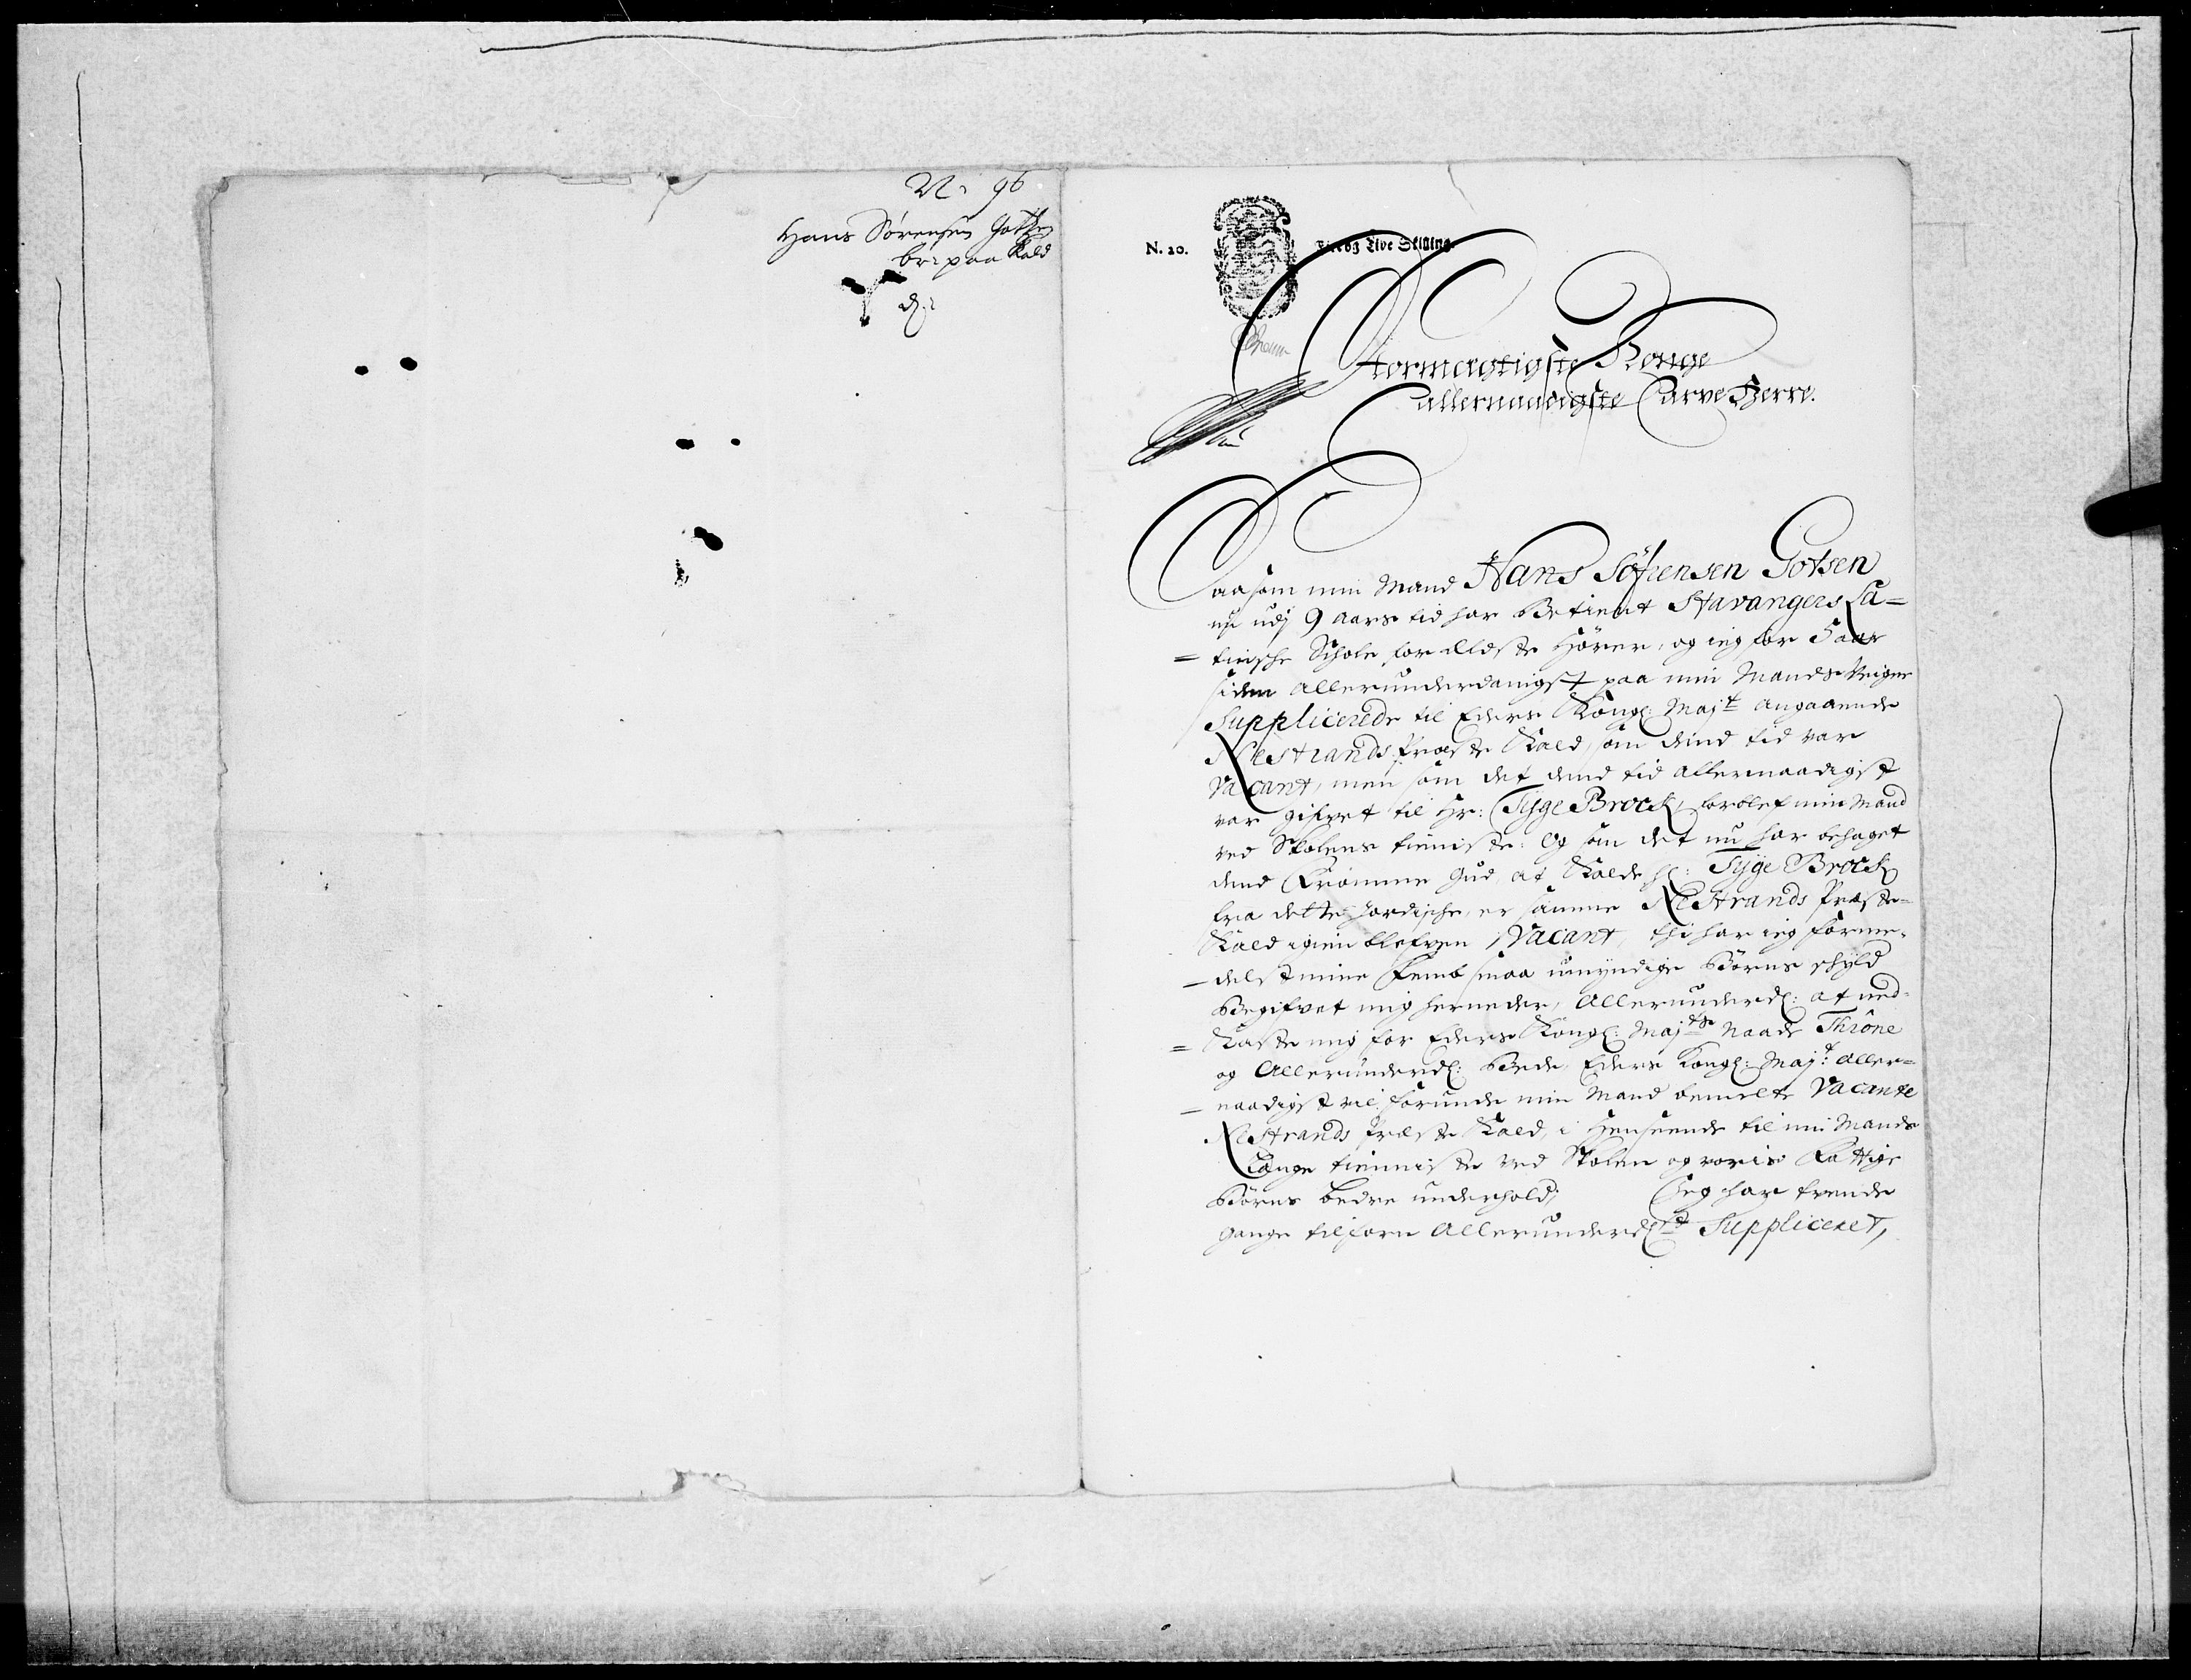 N: 96
Hans Sørensen Gotzen
br: paa Kald
N. 20.
Fire og Tive Skilling.
Stormægtigste Konge
allernaadigste Larve Herre.
Saasom min Mand Hans Söfrensen Gotsen
nu udj 9 aars tid har Betient Stavangers La=
=tinsche Schole for ælldste Hörer, og ieg for 5 aar
siden allerunderdanigst paa min Mands Veigne
Supplicerede til Eders Kongl: Majt angaaende
Nestrands Præste Kald, som dend tid var
Vacant, men som det dend tid allernaadigst
var gifvet til Hr: Tyge Brock, forblef min Mand
ved Skolens tienniste: Og som det nu har behaget
dend Fromme Gud at Kalde Hr: Tyge Brock
fra dette Jordische, er samme Nestrands Præste=
Kald igien blefven Vacant, thi har ieg forme=
=delst mine Femb smaa umyndige Börns schyld
Begifvet mig herneder, Allerunderdl: at ned=
=Kaste mig for Eders Kongl: Majts Naade Thrône
og Allerunderdl: Bede Eders Kongl: Majt: Aller=
=naadigst vil forunde min Mand bemelte Vacante
Nestrands Præste Kald, i Henseende til min Mands
Lange tienniste ved Skolen og voris Fattige
Börns bedre underhold; Jeg har trende
gange tilforn Allerunderdst Suppliceret,